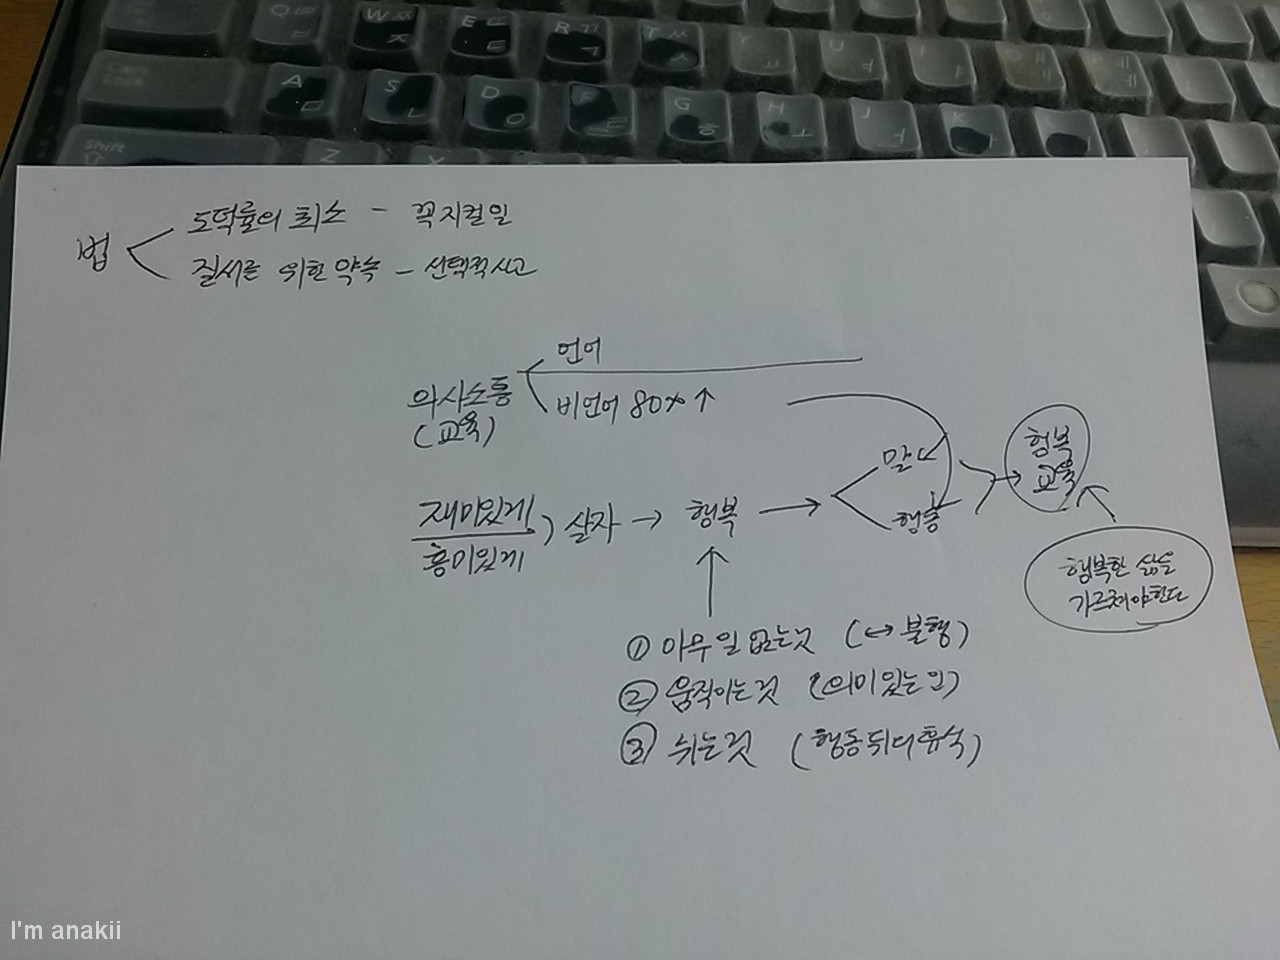 Q ㅂ W ㅈ E ㄷ R ㄱ T ㅅ Y ㅛ U ㅕ I ㅑ ㅐ ㅔ
A ㅁ S ㄴ D ㅇ ㄹ G ㅎ H ㅗ J ㅓ K ㅏ
Shift Z X
법
도덕률의 최소 - 꼭지컬일
질서를 위한 약속 - 선택적사고
언어
의사소통
비언어 80% ↑
(교육)
행복
교육
말
재미있게
흥미있게
) 살자 → 행복 →
행동
행복한 삶을
가르쳐야한다
① 아무일 없는것 (↔ 불행)
② 움직이는 것 (의미있는 일)
③ 쉬는것 (행동뒤의휴식)
I'm anakii